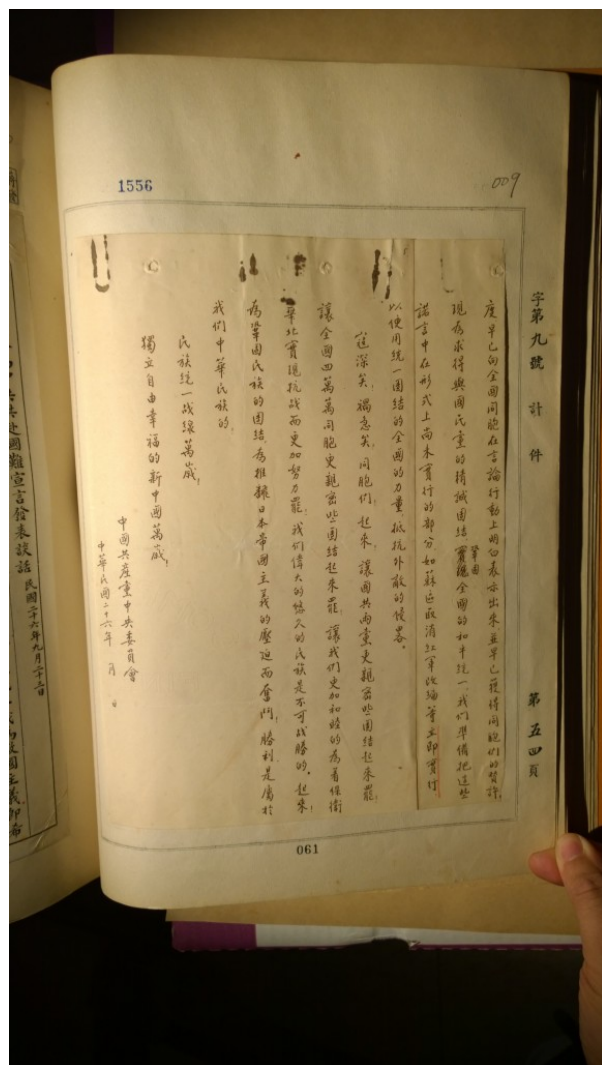 1556
009
字第九號 計 件
第五四頁
度早已向全國同胞在言論行動上明白表示出來,並早已獲得同胞們的贊許。
現為求得與國民黨的精誠團結,鞏固全國的和平統一,我們準備把這些
諾言中在形式上尚未實行的部分,如蘇區取消,紅軍改編等立即實行
以使用統一團結的全國的力量,抵抗外敵的侵略。
寇深矣,禍急矣,同胞們,起來,讓國共兩黨更親密些團結起來罷,
讓全國四萬萬同胞更親密些團結起來罷,讓我們更加和睦的為着保衛
華北實現抗战而更加努力罷,我們偉大的悠久的民族是不可战勝的。起來,
為鞏固民族的團結,為推翻日本帝國主義的壓迫而奮鬥,勝利是屬於
我們中華民族的,
民族統一战線萬歲,
獨立自由幸福的新中國萬歲,
中國共產黨中央委員會
中華民國二十六年 月 日
061
共赴國難宣言發表談話 民國二十六年九月二十三日